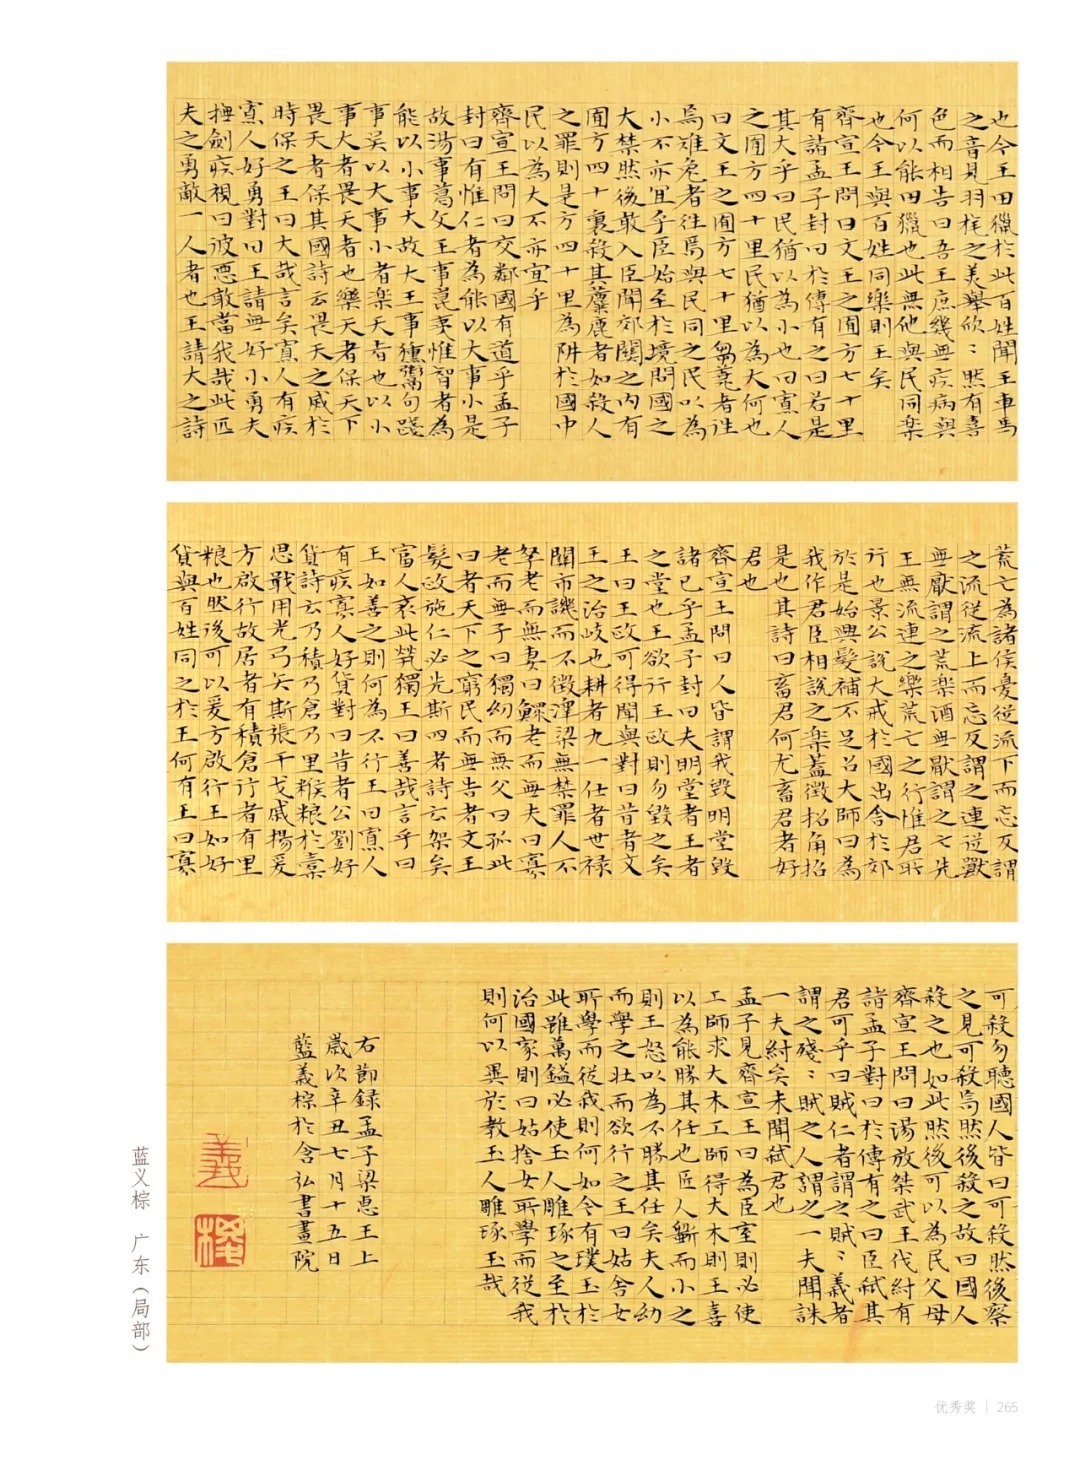 也今王田獵於此百姓聞王車馬
之音見羽旄之美舉欣〻然有喜
色而相告曰吾王庶幾無疾病與
何以能田獵也此無他與民同樂
也今王與百姓同樂則王矣
齊宣王問曰文王之囿方七十里
有諸孟子對曰於傳有之曰若是
其大乎曰民猶以為小也曰寡人
之囿方四十里民猶以為大何也
曰文王之囿方七十里芻蕘者往
焉雉兔者往焉與民同之民以為
小不亦宜乎臣始至於境問國之
大禁然後敢入臣聞郊關之內有
囿方四十里殺其麋鹿者如殺人
之罪則是方四十里為阱於國中
民以為大不亦宜乎
齊宣王問曰交鄰國有道乎孟子
對曰有惟仁者為能以大事小是
故湯事葛文王事昆夷惟智者為
能以小事大故大王事獯鬻句踐
事吳以大事小者樂天者也以小
事大者畏天者也樂天者保天下
畏天者保其國詩云畏天之威於
時保之王曰大哉言矣寡人有疾
寡人好勇對曰王請無好小勇夫
撫劍疾視曰彼惡敢當我哉此匹
夫之勇敵一人者也王請大之詩
荒亡為諸侯憂從流下而忘反謂
之流從流上而忘反謂之連從獸
無厭謂之荒樂酒無厭謂之亡先
王無流連之樂荒亡之行惟君所
行也景公說大戒於國出舍於郊
於是始興發補不足召大師曰為
我作君臣相說之樂蓋徵招角招
是也其詩曰畜君何尤畜君者好
君也
齊宣王問曰人皆謂我毀明堂毀
諸已乎孟子對曰夫明堂者王者
之堂也王欲行王政則勿毀之矣
王曰王政可得聞與對曰昔者文
王之治岐也耕者九一仕者世祿
關市譏而不徵澤梁無禁罪人不
孥老而無妻曰鰥老而無夫曰寡
老而無子曰獨幼而無父曰孤此
曰者天下之窮民而無告者文王
發政施仁必先斯四者詩云哿矣
富人哀此煢獨王曰善哉言乎曰
王如善之則何為不行王曰寡人
有疾寡人好貨對曰昔者公劉好
貨詩云乃積乃倉乃里餱糧於橐
思戢用光弓矢斯張干戈戚揚爰
方啟行故居者有積倉行者有里
糧也然後可以爰方啟行王如好
貨與百姓同之於王何有王曰寡
可殺勿聽國人皆曰可殺然後察
之見可殺焉然後殺之故曰國人
殺之也如此然後可以為民父母
齊宣王問曰湯放桀武王伐紂有
諸孟子對曰於傳有之曰臣弒其
君可乎曰賊仁者謂之賊〻義者
謂之殘〻賊之人謂之一夫聞誅
一夫紂矣未聞弒君也
孟子見齊宣王曰為巨室則必使
工師求大木工師得大木則王喜
以為能勝其任也匠人斲而小之
則王怒以為不勝其任矣夫人幼
而學之壯而欲行之王曰姑舍女
所學而從我則何如今有璞玉於
此雖萬鎰必使玉人雕琢之至於
治國家則曰姑捨女所學而從我
則何以異於教玉人雕琢玉哉
右節録孟子梁惠王上
歲次辛丑七月十五日
藍義棕於含弘書畫院
義
棕
蓝义棕 广东（局部）
优秀奖 | 265